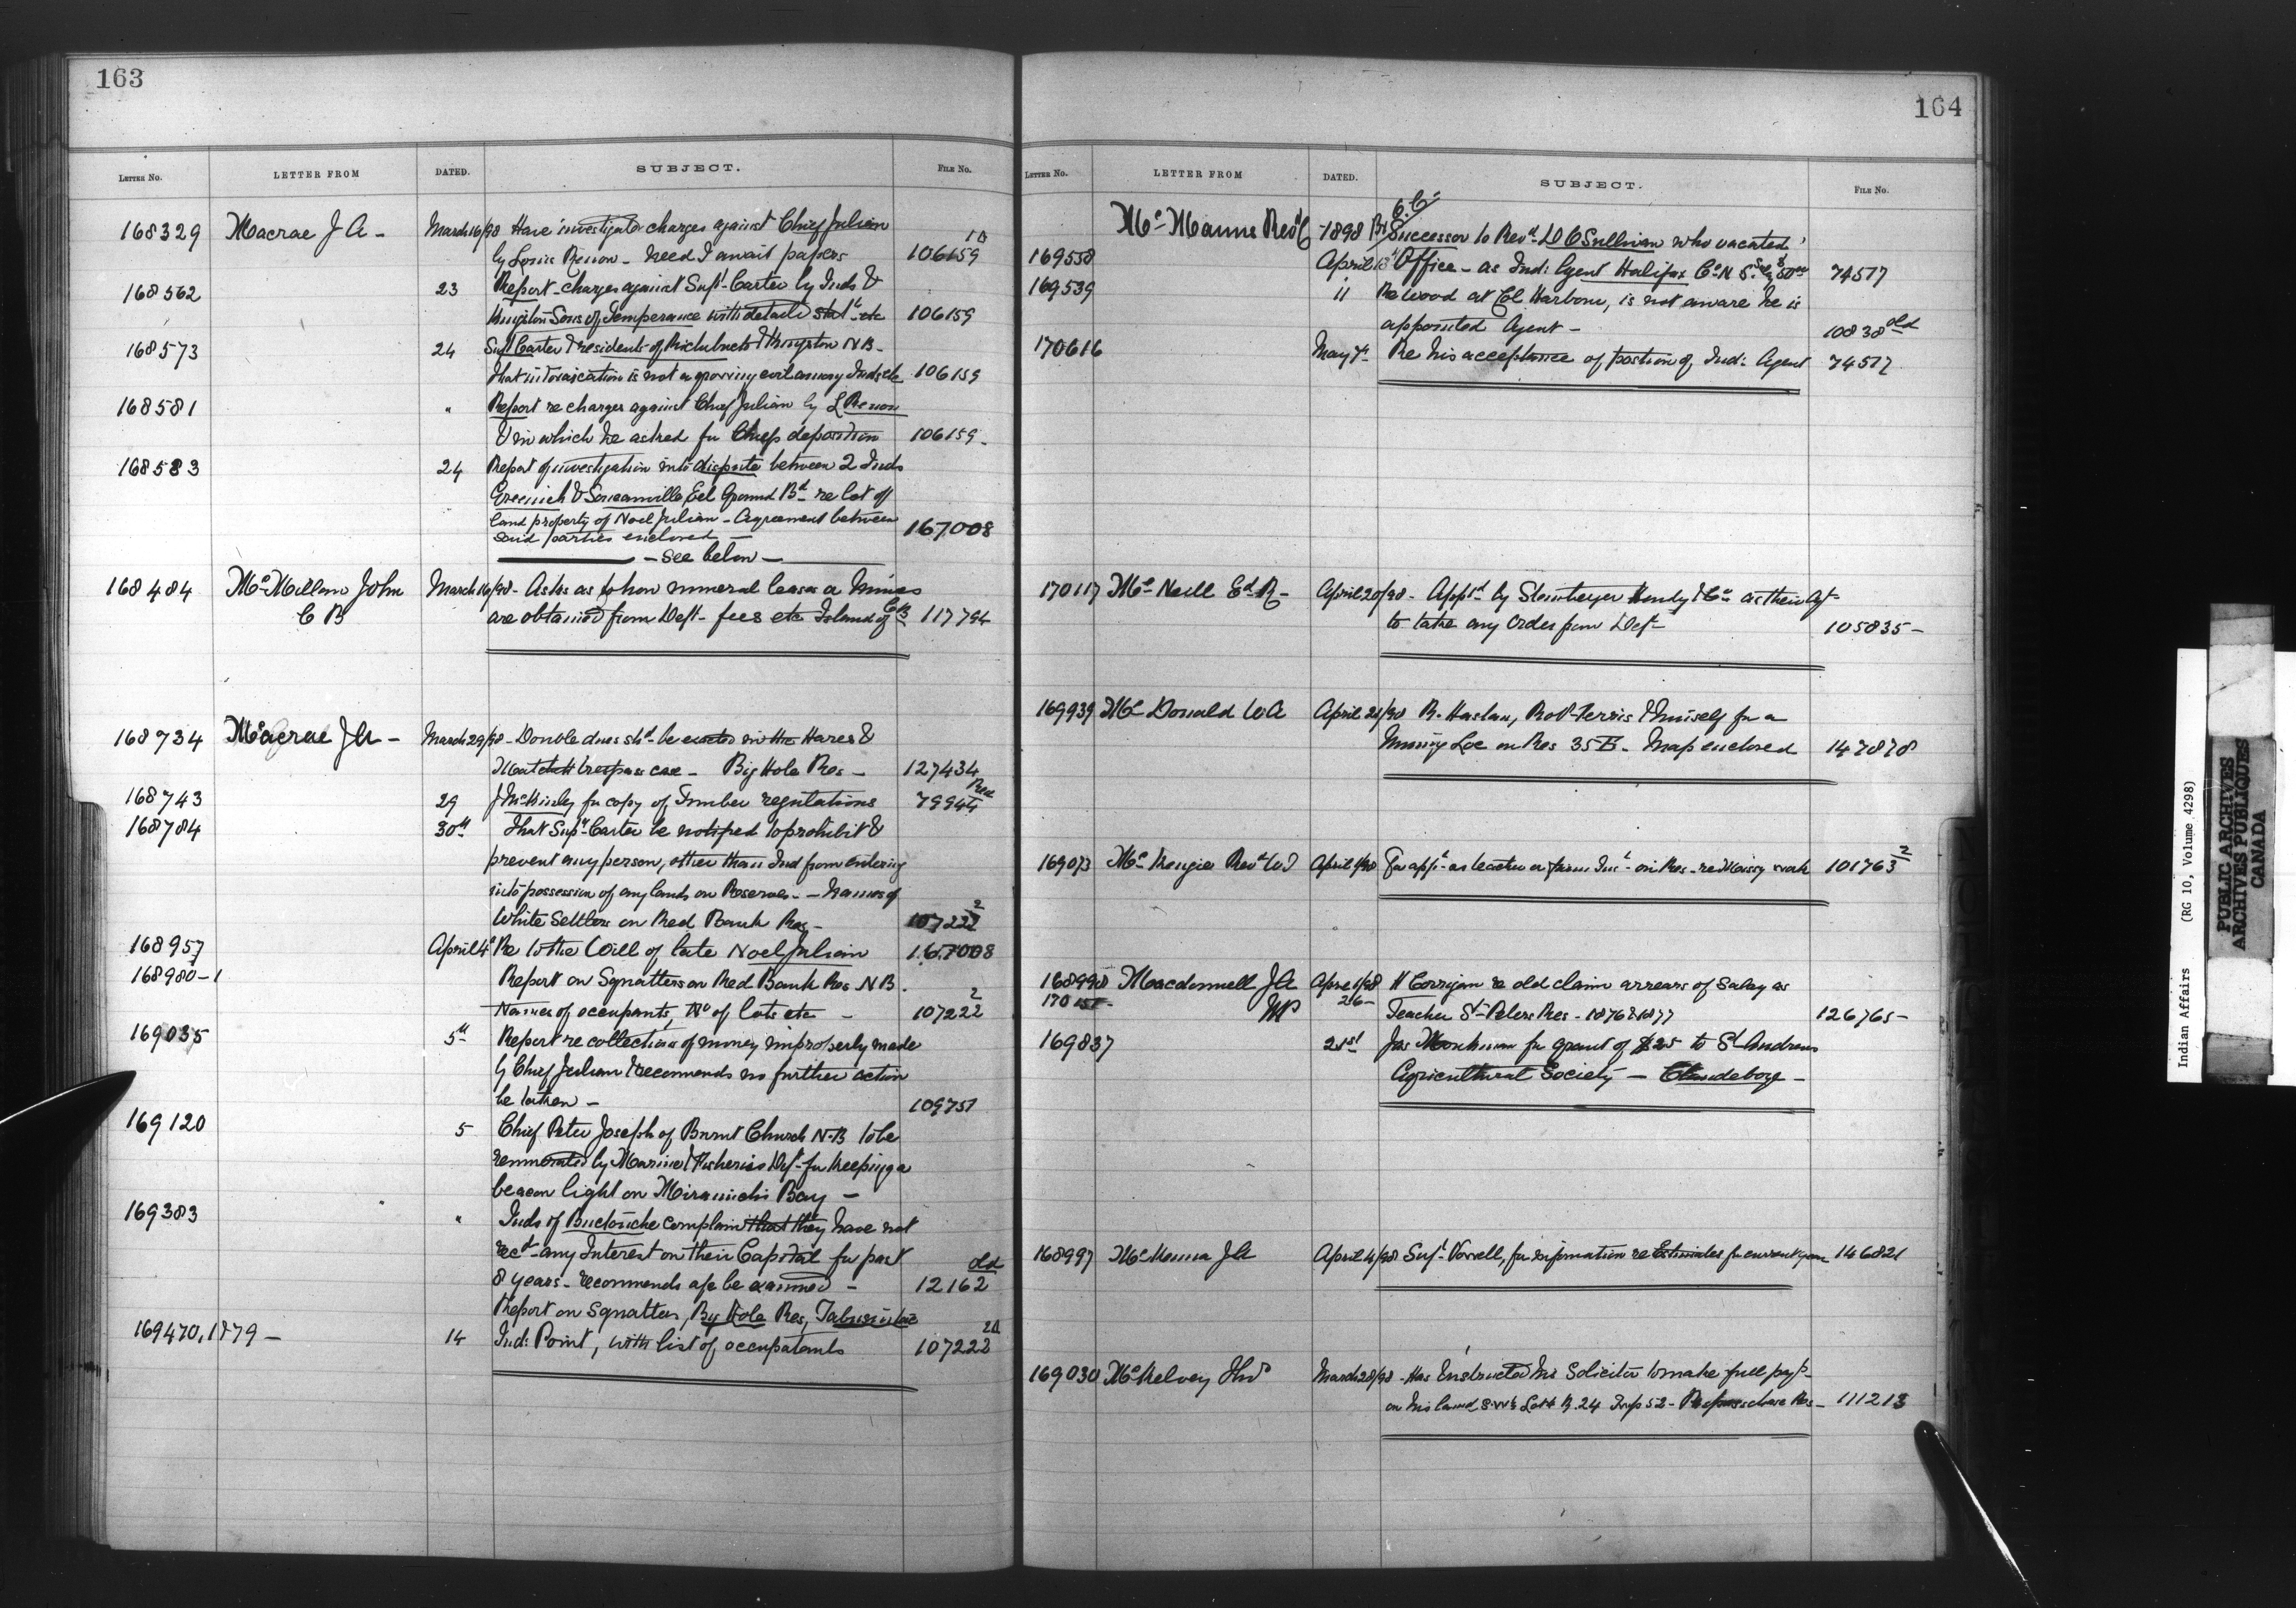 163
LETTER NO. LETTER FROM DATED. SUBJECT. FILE No.
168329 Macrae J A - March 16/98 Have investigate charges against Chief Julian
by Louis Renou - need I await papers 106159 1A
168562 23 Report - charges against Supt Carter by Inds &
Kingston Sons of Temperance with detailed statt etc 106159
168573 24 Supt Carter & residents of Richibucto & Kingston N B -
that intoxication is not a growing evil among Inds etc 106159
168581 " Report re charges against Chief Julian by L Renou
& in which he asked for Chiefs deposition 106159 -
168583 24 Report of investigation into dispute between 2 Inds
Greenich & Eel Ground Bd re lot of
land property of Noel Julian - Agreement between
said parties enclosed - 167008
- See below -
168484 Mc Millan John March 16/98 - Asks as to how mineral leases or mines
C B are obtained from Dept - fees etc Island of C B 117794
168734 Macrae J A - March 29/98 - Double dues shd be exacted in the Hares &
Matchett trespass case - Big Hole Res - 127434
168743 29 J McKinley for copy of Timber regulations 79944 Red
168784 30th That Supt Carter be notified to prohibit &
prevent any person, other than Ind from entering
into possession of any lands on Reserves - Names of
White Settlers on Red Bank Res - 107222 2
168957 April 4 Re to the Will of late Noel Julian 167008
168980-1 Report on Squatters on Red Bank Res N B.
Names of occupants, No of lots etc - 107222 2
169035 5th Report re collection of money improperly made
by Chief Julian & recommends no further action
be taken - 109751
169120 5 Chief Peter Joseph of Burnt Church N.B to be
remunerated by Marine & Fisheries Dept for keeping a
beacon light on Miramichi Bay -
169383 " " Inds of Buctouche complain that they have not
recd any Interest on their Capital for past
8 years - recommends a/c be examined - 12162 old
Report on Squatters, Big Hole Res, Tabusintac
169470, 1879 - 14 Ind: Point, with list of occupatants 107222 2A
164
LETTER NO. LETTER FROM DATED. SUBJECT. FILE No.
Mc Manus Revd C 1898 Successor to Revd D O'Sullivan who vacated
169558 April 13 Office - as Ind: Agent Halifax Co N S. Saly $50 00 74517
169539 11 Re wood at Col Harbour, is not aware he is
appointed Agent - 10838 old
170616 May 7 Re his acceptance of postion of Ind: Agent 74517
170117 Mc Neill Ed R - April 20/98 - Apptd by Steinberger Hendry & Co as their Agt
to take any Order from Dept 105835 -
169939 Mc Donald W A April 21/98 R. Haslam, Robt Ferris & himself for a
Mining Loc on Res 35 B. Map enclosed 147878
169073 Mc Kenzie Revd W J April 1/98 For appt as teacher or farm Inst on Res - re Missy work 101763 2
168998 Macdonnell J A April 1/98 H Corrigan re old claim arrears of Salary as
170151 - MP 26 - Teacher St Peters Res - 1876 & 1877 126765 -
169837 21st Jas for grant of $25 to St Andrews
Agricultural Society - Clandeboye -
168997 McKenna J A April 4/98 Supt Vowell, for information re Estimates for current year 146821
169030 McKelvey Thos March 28/98 - Has Instructed his Solicitor to make full payt
on his land S.W ¼ Lot 4 R.24 Twp 52 - Res - 111213
Indian Affairs (RG 10, Volume 4298)
PUBLIC ARCHIVES
ARCHIVES PUBLIQUES
CANADA